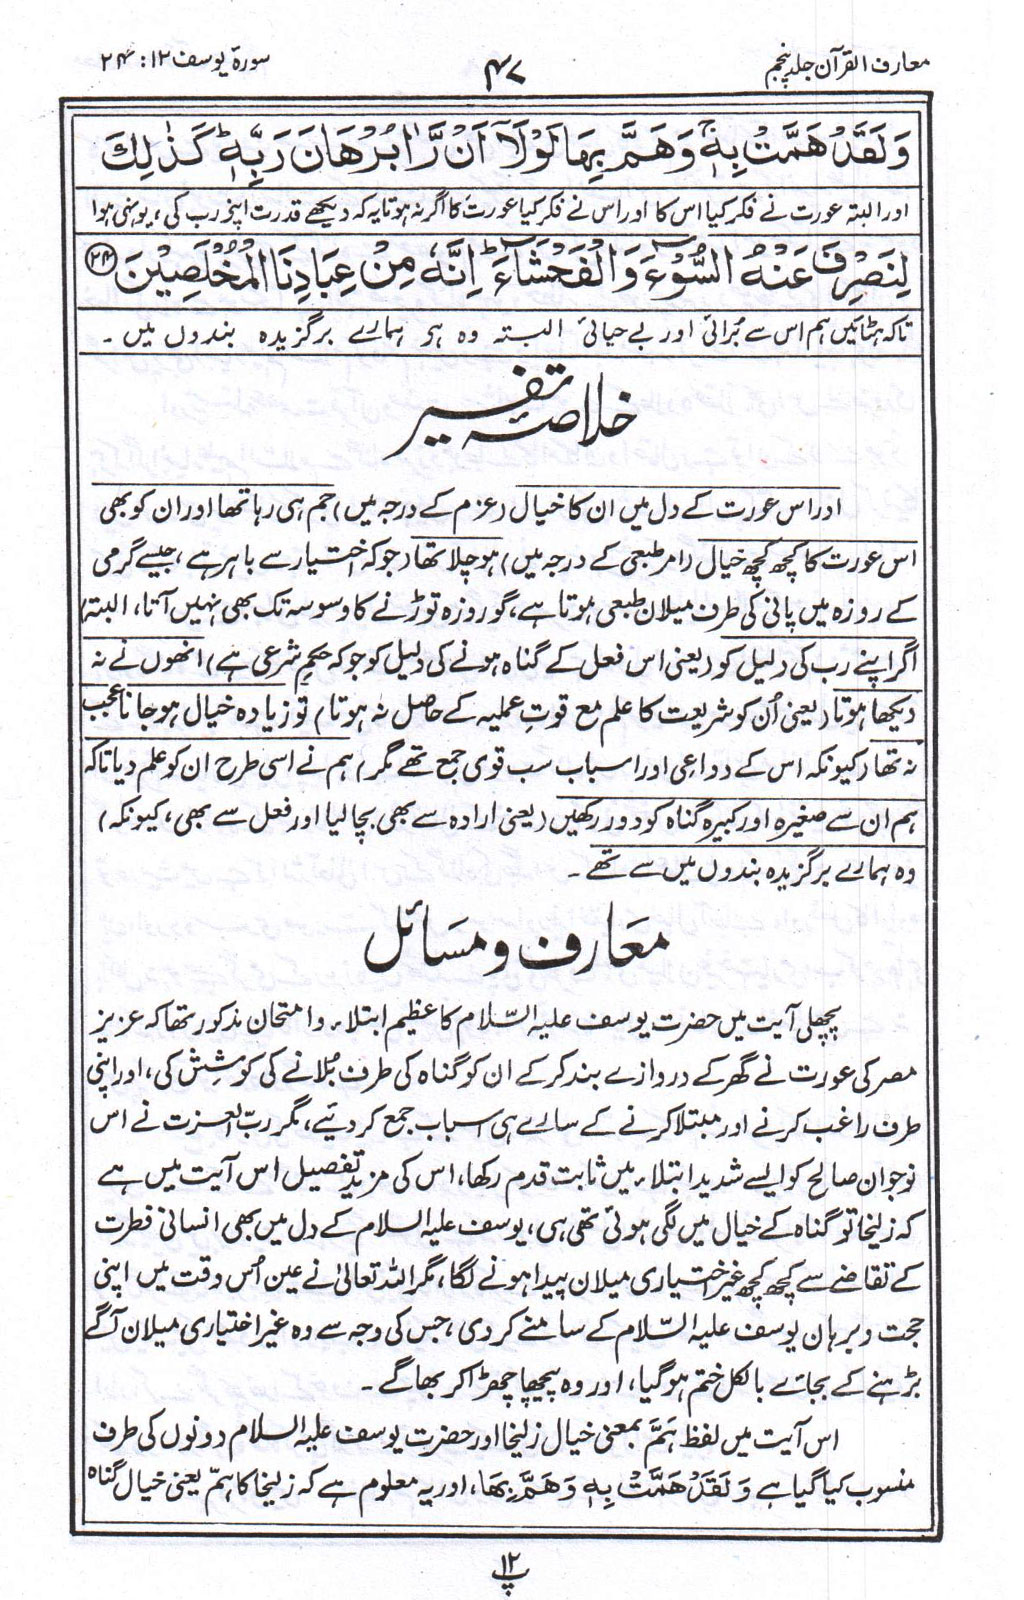 معارف القرآن جلد پنجم
۴۷
سورۃ یوسف ۱۲ : ۲۴
وَلَقَدْ هَمَّتْ بِهٖ ۚ وَهَمَّ بِهَا لَوْلَآ اَنْ رَّاٰ بُرْهَانَ رَبِّهٖ ؕ كَذٰلِكَ
اور البتہ عورت نے فکر کیا اس کا اور اس نے فکر کیا عورت کا اگر نہ ہوتا یہ کہ دیکھے قدرت اپنے رب کی، یونہی ہوا
لِنَصْرِفَ عَنْهُ السُّوْٓءَ وَالْفَحْشَآءَ ؕ اِنَّهٗ مِنْ عِبَادِنَا الْمُخْلَصِيْنَ ﴿۲۴﴾
تاکہ ہٹائیں ہم اس سے برائی اور بے حیائی البتہ وہ ہے ہمارے برگزیدہ بندوں میں ۔
خلاصۂ تفسیر
اور اس عورت کے دل میں ان کا خیال (عزم کے درجہ میں) جم ہی رہا تھا اور ان کو بھی
اس عورت کا کچھ کچھ خیال (امر طبعی کے درجہ میں) ہو چلا تھا (جو کہ اختیار سے باہر ہے، جیسے گرمی
کے روزہ میں پانی کی طرف میلان طبعی ہوتا ہے، گو روزہ توڑنے کا وسوسہ تک بھی نہیں آتا، البتہ)
اگر اپنے رب کی دلیل کو (یعنی اس فعل کے گناہ ہونے کی دلیل کو جو کہ حکم شرعی ہے) انھوں نے نہ
دیکھا ہوتا (یعنی اُن کو شریعت کا علم مع قوتِ عملیہ کے حاصل نہ ہوتا) تو زیادہ خیال ہو جانا عجب
نہ تھا (کیونکہ اس کے دواعی اور اسباب سب قوی جمع تھے مگر) ہم نے اسی طرح ان کو علم دیا تاکہ
ہم ان سے صغیرہ اور کبیرہ گناہ کو دور رکھیں (یعنی ارادہ سے بھی بچا لیا اور فعل سے بھی، کیونکہ)
وہ ہمارے برگزیدہ بندوں میں سے تھے ۔
معارف و مسائل
پچھلی آیت میں حضرت یوسف علیہ السّلام کا عظیم ابتلاء و امتحان مذکور تھا کہ عزیز
مصر کی عورت نے گھر کے دروازے بند کر کے ان کو گناہ کی طرف بُلانے کی کوشش کی، اور اپنی
طرف راغب کرنے اور مبتلا کرنے کے سارے ہی اسباب جمع کر دئیے، مگر ربّ العزت نے اس
نوجوان صالح کو ایسے شدید ابتلاء میں ثابت قدم رکھا، اس کی مزید تفصیل اس آیت میں ہے
کہ زلیخا تو گناہ کے خیال میں لگی ہوئی تھی ہی، یوسف علیہ السلام کے دل میں بھی انسانی فطرت
کے تقاضے سے کچھ کچھ غیر اختیاری میلان پیدا ہونے لگا، مگر اللہ تعالیٰ نے عین اُس وقت میں اپنی
حجت و برہان یوسف علیہ السّلام کے سامنے کر دی، جس کی وجہ سے وہ غیر اختیاری میلان آگے
بڑہنے کے بجائے بالکل ختم ہو گیا، اور وہ پیچھا چھڑا کر بھاگے ۔
اس آیت میں لفظ ہَمَّ بمعنی خیال زلیخا اور حضرت یوسف علیہ السلام دونوں کی طرف
منسوب کیا گیا ہے وَلَقَدْ هَمَّتْ بِهٖ وَهَمَّ بِهَا، اور یہ معلوم ہے کہ زلیخا کا ہمّ یعنی خیال گناہ
پ ۱۲